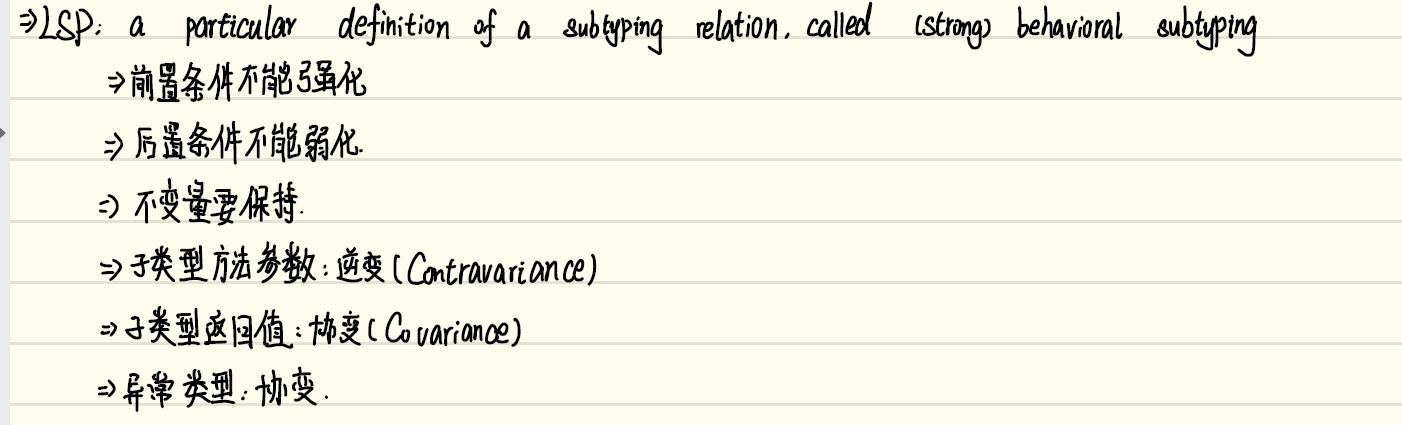 ⇒LSP: a particular definition of a subtyping relation, called (strong) behavioral subtyping
⇒前置条件不能强化
⇒后置条件不能弱化.
⇒不变量要保持.
⇒子类型方法参数:逆变(Contravariance)
⇒子类型返回值:协变(Covariance)
⇒异常类型:协变.